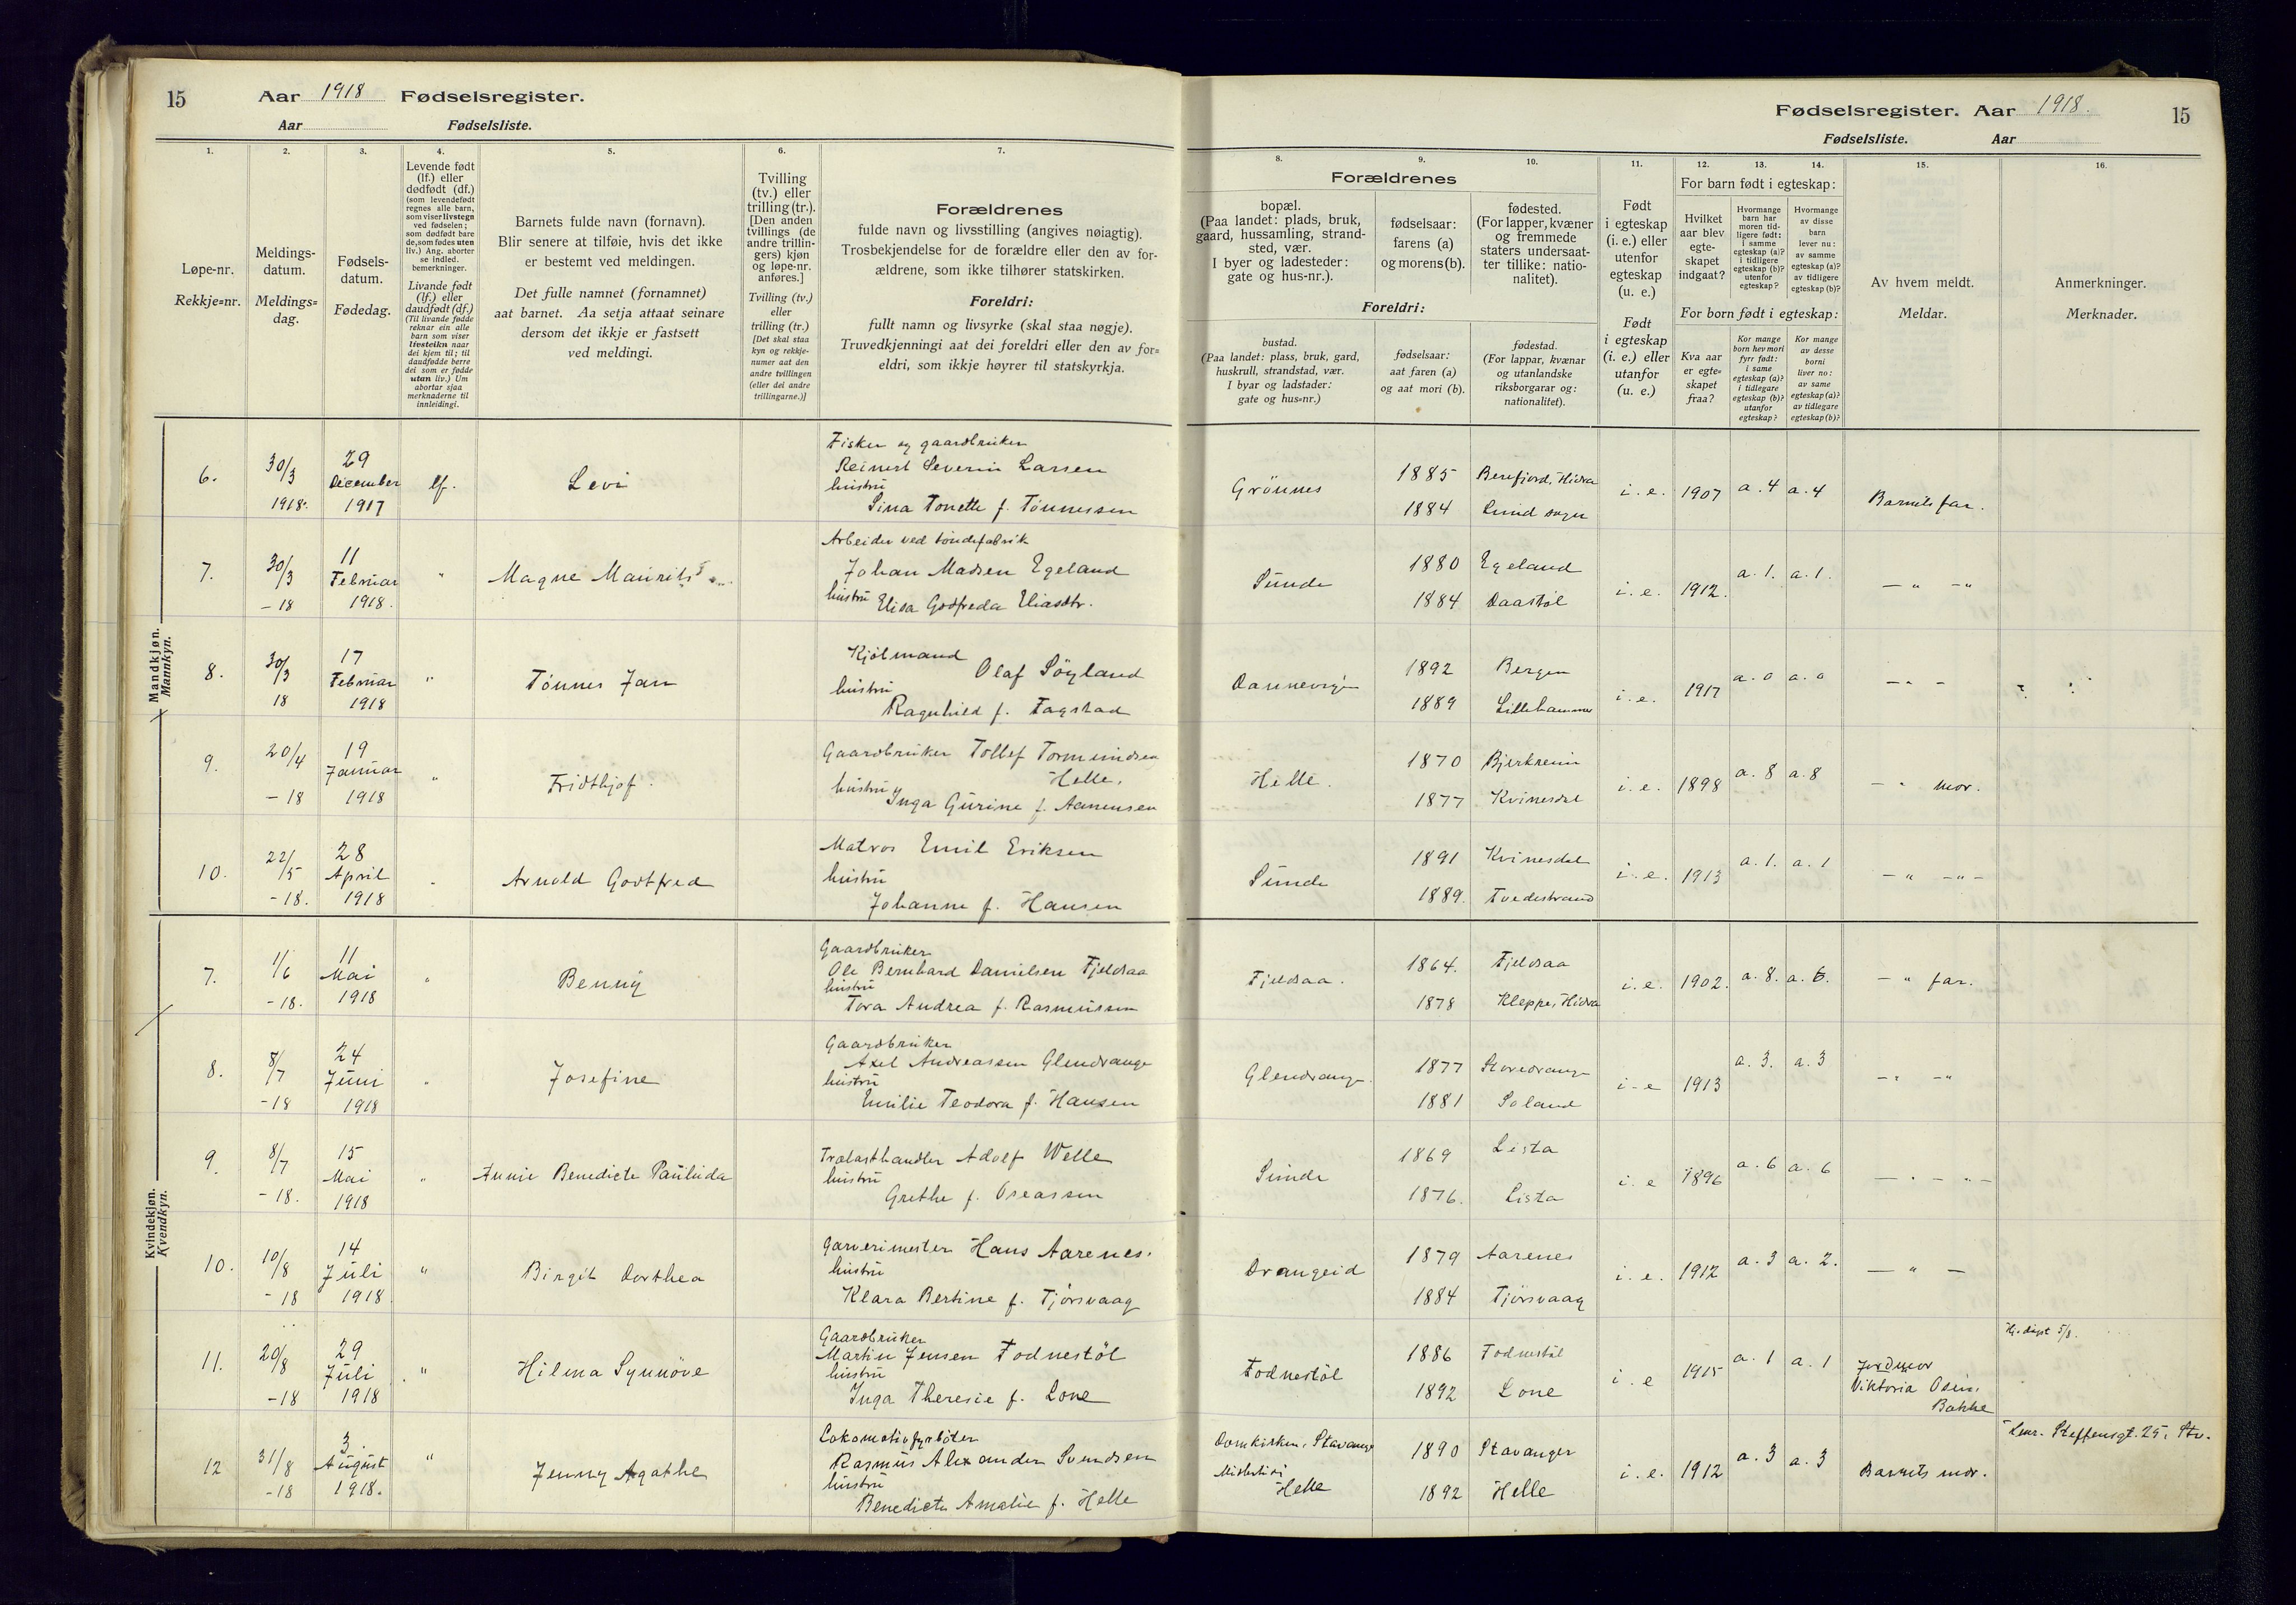 15
Aar 1918 Fødselsregister.
Aar Fødselsliste.
1.
2.
3.
4.
5.
6.
7.
Løpe-nr.
Rekkje=nr.
Meldings-
datum.
Meldings=
dag.
Fødsels-
datum.
Fødedag.
Levende født
(lf.) eller
dødfødt (df.)
(som levendefødt
regnes alle barn,
som viser livstegn
ved fødselen;
som dødfødt bare
de, som fødes uten
liv.) Ang. aborter
se indled.
bemerkninger.
Livande født
(lf.) eller
daudfødt (df.)
(Til livande fødde
reknar ein alle
barn som viser
livsteikn naar
dei kjem til; til
daudfødde berre
dei som er fødde
utan liv.) Um
abortar sjaa
merknaderne til
innleidingi.
Barnets fulde navn (fornavn).
Blir senere at tilføie, hvis det ikke
er bestemt ved meldingen.
Det fulle namnet (fornamnet)
aat barnet. Aa setja attaat seinare
dersom det ikkje er fastsett
ved meldingi.
Tvilling
(tv.) eller
trilling (tr.).
[Den anden
tvillings (de
andre trillin-
gers) kjøn
og løpe-nr.
anføres.]
Tvilling (tv.)
eller
trilling (tr.)
[Det skal staa
kyn og rekkje-
numer aat den
andre tvillingen
(eller dei andre
trillingarne.)]
Forældrenes
fulde navn og livsstilling (angives nøiagtig).
Trosbekjendelse for de forældre eller den av for-
ældrene, som ikke tilhører statskirken.
Foreldri:
fullt namn og livsyrke (skal staa nøgje).
Truvedkjenningi aat dei foreldri eller den av for=
eldri, som ikkje høyrer til statskyrkja.
Fødselsregister. Aar 1918.
15
Fødselsliste. Aar
8.
9.
10.
11.
12.
13.
14.
15.
16.
Forældrenes
bopæl.
(Paa landet: plads, bruk,
gaard, hussamling, strand-
sted, vær.
I byer og ladesteder:
gate og hus-nr.).
fødselsaar:
farens (a)
og morens (b).
fødested.
(For lapper, kvæner
og fremmede
staters undersaat-
ter tillike: natio-
nalitet).
Foreldri:
bustad.
(Paa landet: plass, bruk, gard,
huskrull, strandstad, vær.
I byar og ladstader:
gate og hus=nr.)
fødselsaar:
aat faren (a)
og aat mori (b).
fødestad.
(For lappar, kvænar
og utanlandske
riksborgarar og:
nationalitet).
Født
i egteskap
(i. e.) eller
utenfor
egteskap
(u. e.)
Født
i egteskap
(i. e.) eller
utanfor
(u. e.)
For barn født i egteskap:
Hvilket
aar blev
egte-
skapet
indgaat?
Hvormange
barn har
moren tid-
ligere født:
i samme
egteskap (a)?
i tidligere
egteskap (b)?
utenfor
egteskap?
Hvormange
av disse
barn
lever nu:
av samme
egteskap (a)?
av tidligere
egteskap (b)?
For born født i egteskap:
Kva aar
er egte=
skapet
fraa?
Kor mange
born hev mori
fyrr født:
i same
egteskap (a)?
i tidlegare
egteskap (b)?
utanfor
egteskap?
Kor mange
av desse
borni
liver no:
av same
egteskap (a)?
av tidlegare
egteskap (b)?
Av hvem meldt.
Meldar.
Anmerkninger.
Merknader.
Mandkjøn.
Mannkyn.
6. 30/3 1918. 29 December 1917 lf. Levi
Fisker og gaardbruker
Reinert Severin Larsen
hustru
Sina Tonette f. Tönnessen
Grönnes 1885 Berefjord, Hidra i. e. 1907 a. 4 a. 4 Barnets far.
1884 Lund sogn
7. 30/3 -18 11 Februar 1918. " Magne Maurits
Arbeider ved töndefabrik
Johan Madsen Egeland
hustru Elisa Godfreda Eliasdtr.
Sunde 1880 Egeland i. e. 1912. a. 1. a. 1. - " - "
1884 Daastöl
8. 30/3 18 17 Februar 1918 " Tönnes Jan
Kjölmand Olaf Söyland
hustru
Ragnhild f. Fagstad
Dannevigen 1892 Bergen i. e. 1917 a. 0 a. 0 - " -
1889 Lillehammer
9. 20/4 -18 19 Januar 1918 " Fridthjof.
Gaardbruker Tollef Tormundsen
Helle.
hustru Inga Gurine f. Aanensen
Helle. 1870 Bjerkreim i. e. 1898 a. 8 a. 8 - " mor.
1877 Kvinesdal
10. 22/5 -18. 28 April 1918 " Arnold Godtfred
Matros Emil Eriksen
hustru
Johanne f. Hansen
Sunde 1891 Kvinesdal i. e. 1913 a. 1. a. 1 - " - " -
1889. Tvedestrand
Kvindekjøn.
Kvendkyn.
7. 1/6 -18. 11 Mai 1918 " Benny
Gaardbruker
Ole Bernhard Danielsen Fjeldsaa
hustru
Tora Andrea f. Rasmussen
Fjeldsaa. 1864. Fjeldsaa i. e. 1902. a. 8. a. 6. - " far.
1878 Kleppe, Hidra
8. 8/7 -18 24 Juni 1918 " Josefine
Gaardbruker
Axel Andreassen Glendrange
hustru
Emilie Teodora f. Hansen
Glendrange. 1877 Storedrange i - e 1913 a. 3. a. 3 - " - "
1881 Soland
9. 8/7 -18. 15 Mai 1918 " Annie Benedicte Paulinda
Trælasthandler Adolf Welle
hustru
Grethe f. Oseassen
Sunde 1869 Lista i. e 1896 a. 6 a. 6 - " - " -
1876. Lista
10. 10/8 -18 14 Juli 1918. " Birgit Dorthea
Garverimester Hans Aarenes.
hustru
Klara Bertine f. Tjörsvaag
Drangeid 1879 Aarenes i. e. 1912 a. 3 a. 2. - " -
1884 Tjörsvaag
11. 20/8 -18 29 Juli 1918 " Hilma Synnöve
Gaardbruker
Martin Jensen Fodnestöl
hustru
Inga Theresie f. Lone
Fodnestöl 1886 Fodnestöl i. e 1915 a. 1 a. 1 Jordmor
1892 Lone Viktoria Osen,
Bakke
Hj.døpt 5/8.
12 31/8 -18 3. August 1918. " Jenny Agathe
Lokomotivfyrböter
Rasmus Alexander Svendsen
hustru
Benedicte Amalie f. Helle
Domkirken, Stavanger 1890 Stavanger i. e. 1912 a. 3 a. 3 Barnets mor.
Helle 1892 Helle
Steffensgt. 25, Stv.